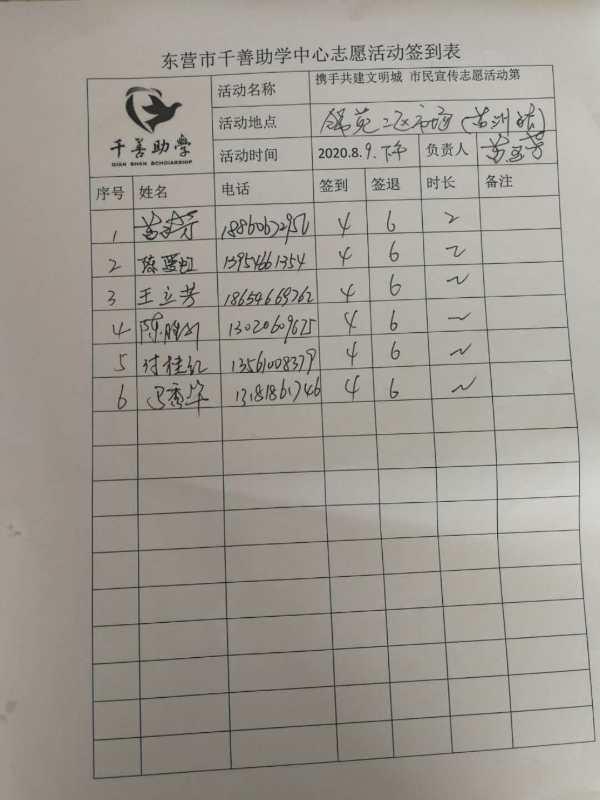 东营市千善助学中心志愿活动签到表
千善助学
QIAN SHAN SCHOLARSHIP
活动名称 携手共建文明城 市民宣传志愿活动第
活动地点 锦苑二区
活动时间 2020.8.9.下午 负责人
序号 姓名 电话 签到 签退 时长 备注
1 4 6 2
2 13954661354 4 6 2
3 王立芳 18654669262 4 6 ~
4 13020609675 4 6 ~
5 付桂红 13561008379 4 6 ~
6 13181861746 4 6 ~